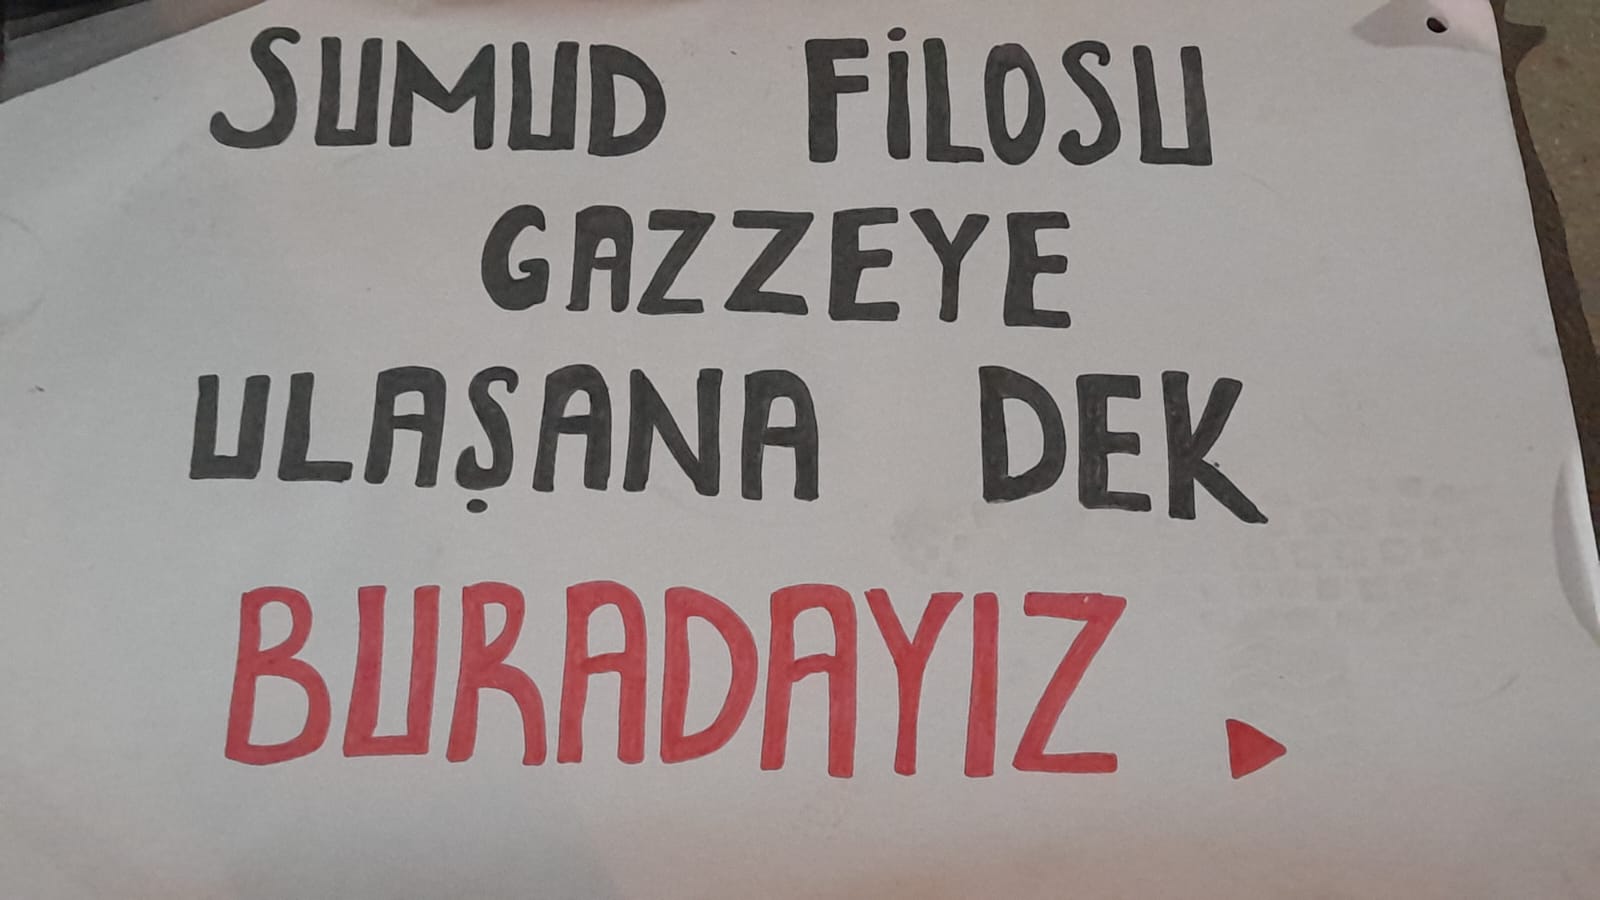 SUMUD FİLOSU
GAZZEYE
ULAŞANA DEK
BURADAYIZ